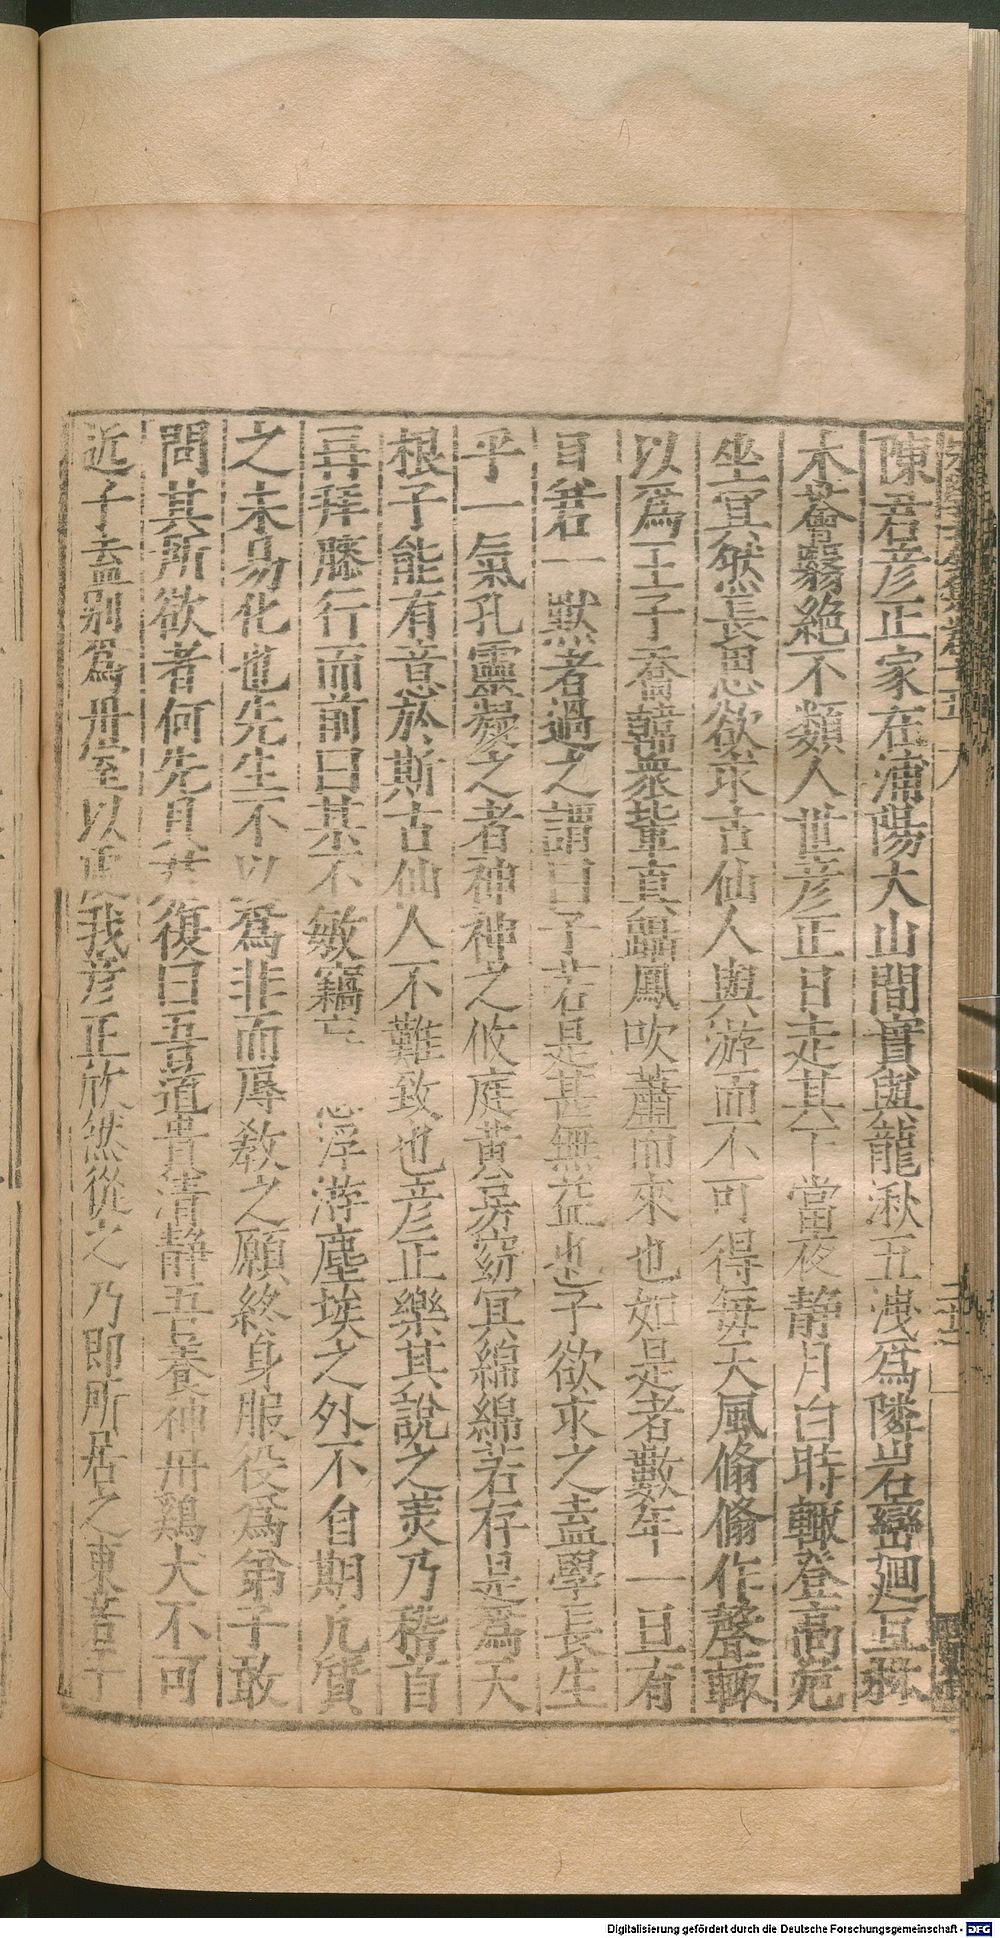 陳君彦正家在浦陽大山間實與龍湫五洩爲隣岩巒廻互林
木薈翳絶不類人世彦正日走其下當夜静月白時輙登高危
坐冥然長思欲求古仙人與游而不可得毎天風翛翛作聲輙
以爲王子喬韓衆輩真驂鳳吹蕭而來也如是者數年一旦有
目若一黙者過之謂曰子若是甚無益也子欲求之盍學長生
乎一氣孔靈凝之者神神之攸庭黄房窈冥綿綿若存是爲天
根子能有意於斯古仙人不難致也彦正樂其說之美乃稽首
再拜膝行而前曰某不敏竊
浮游塵埃之外不自期凡質
之未易化也先生不以爲非而辱教之願終身服役爲弟子敢
問其所欲者何先目若復曰吾道貴清静吾養神丹鷄犬不可
近子盍别爲丹室以延我彦正欣然從之乃即所居之東若干
Digitalisierung gefördert durch die Deutsche Forschungsgemeinschaft - DFG